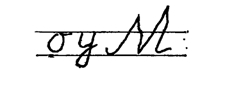 оум: